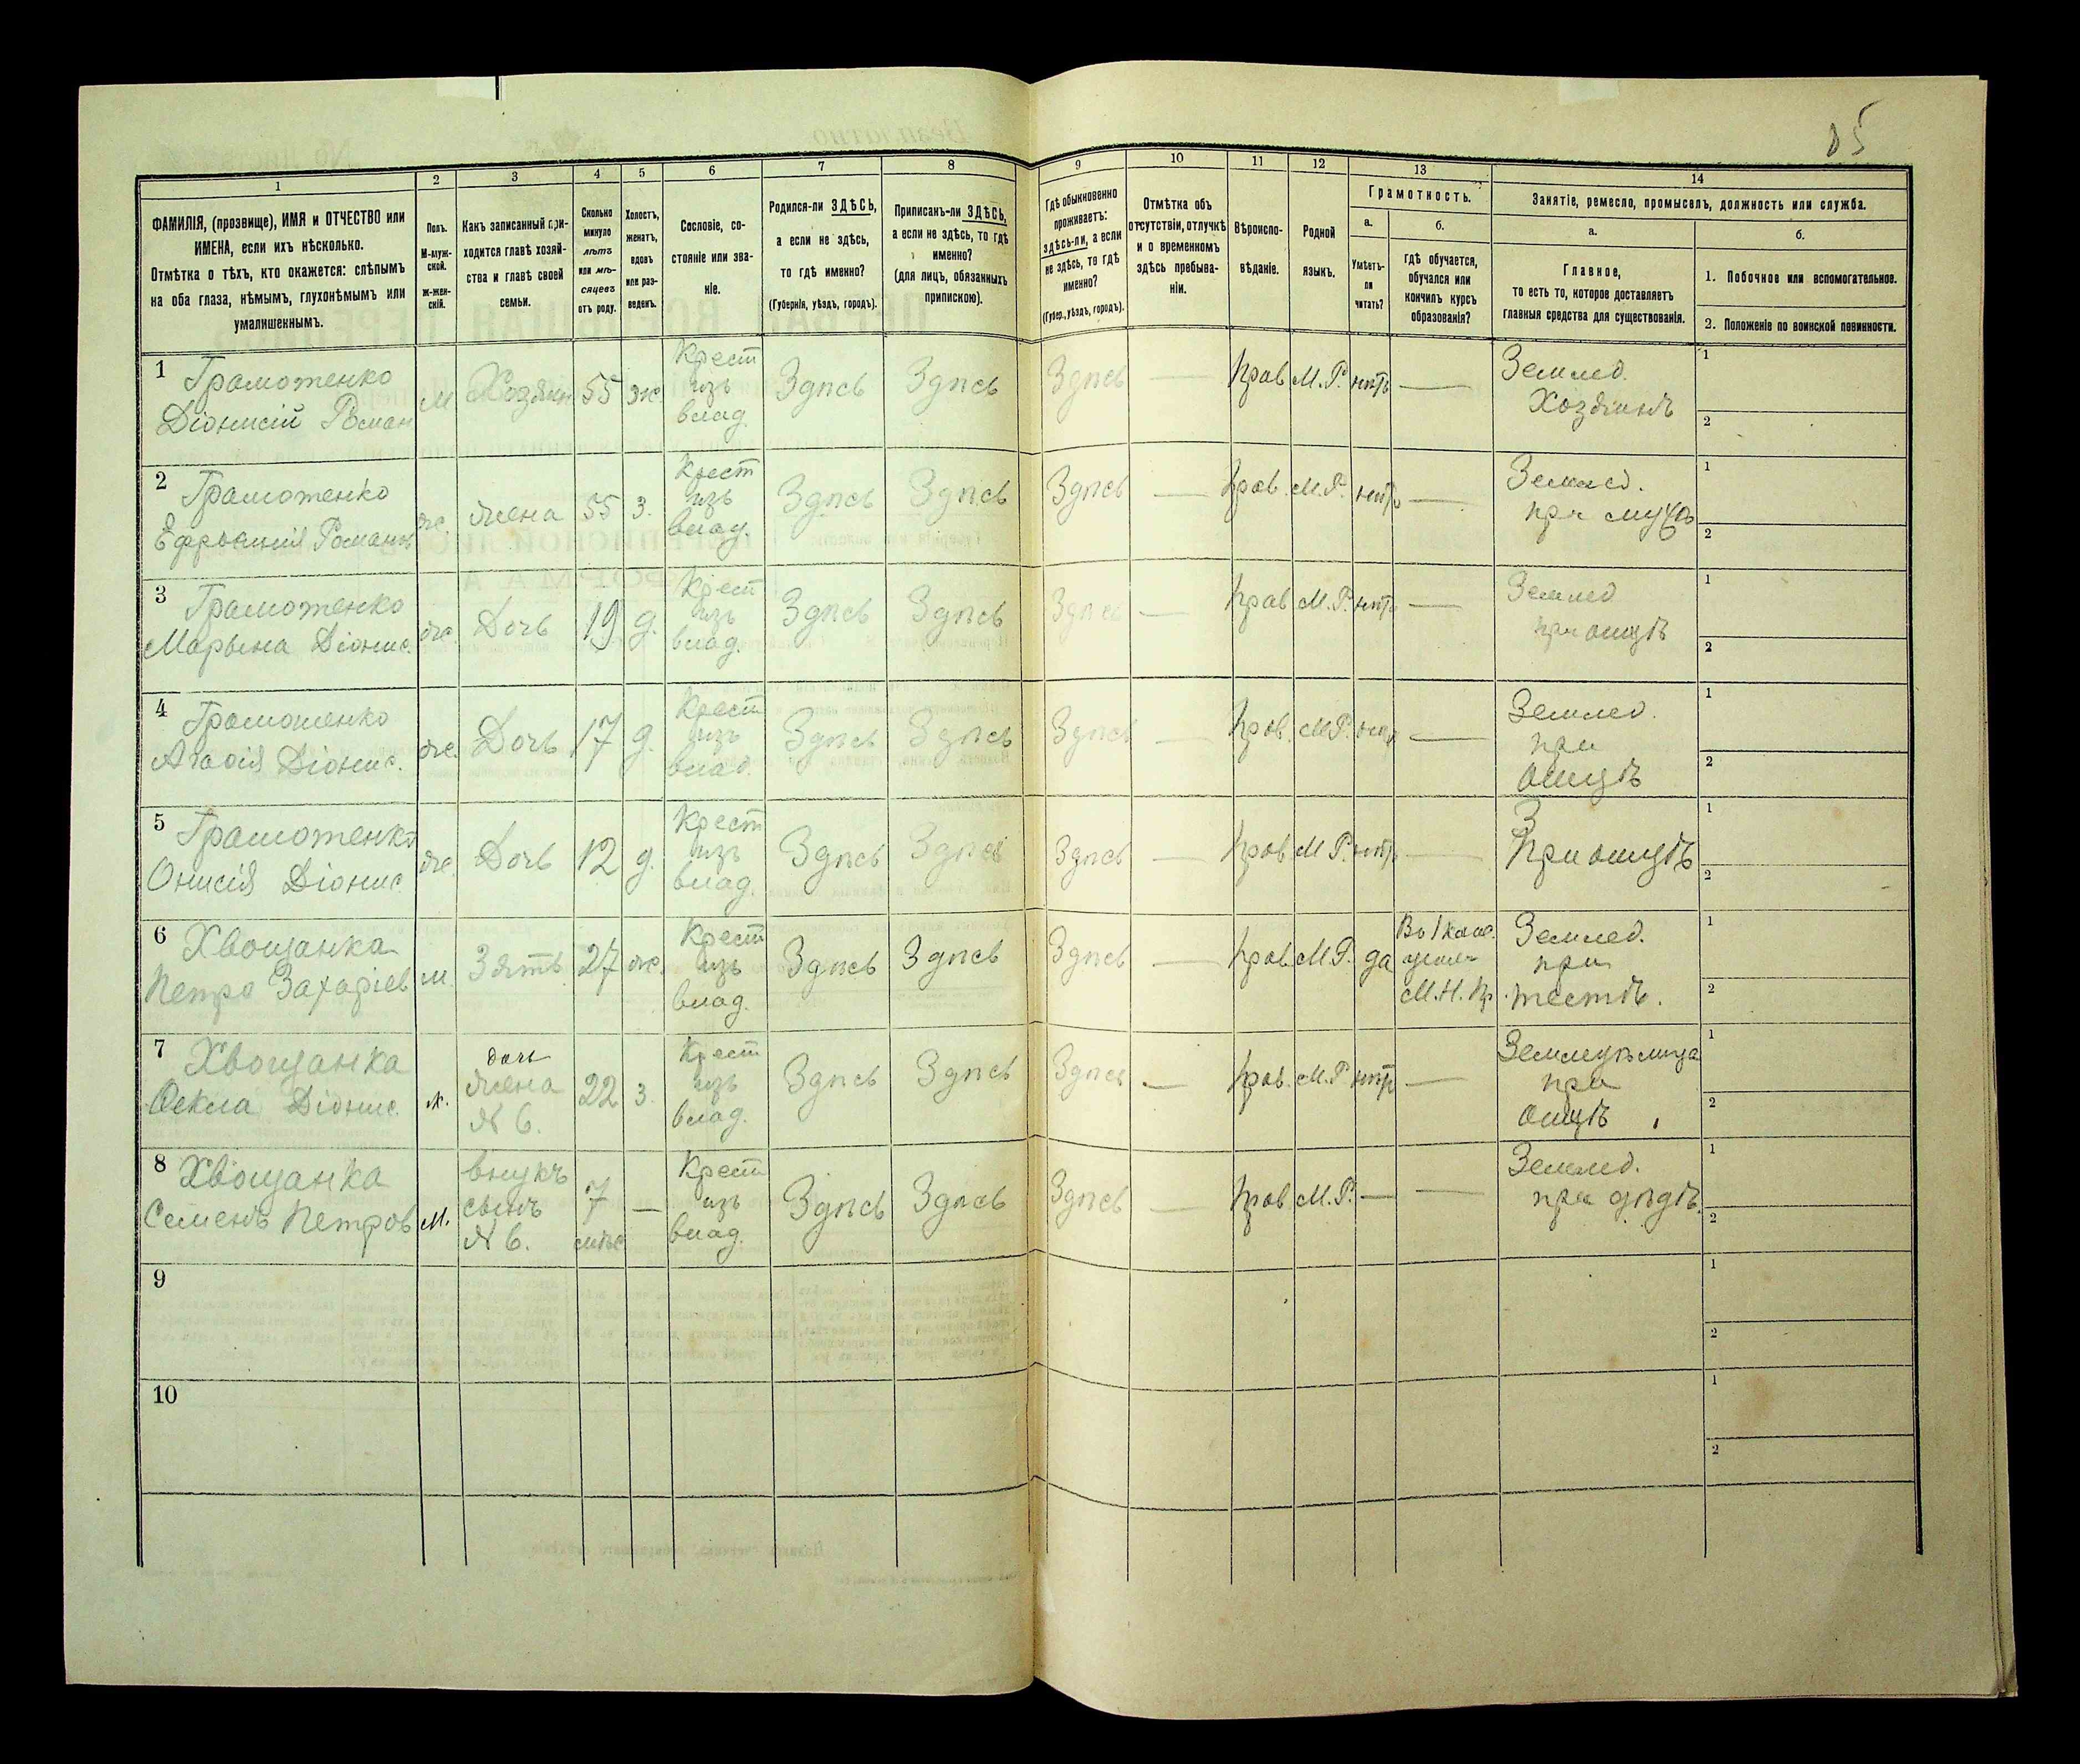 85
1 2 3 4 5 6 7 8 9 10 11 12 13 14
ФАМИЛІЯ, (прозвище), ИМЯ и ОТЧЕСТВО или
ИМЕНА, если ихъ нѣсколько.
Отмѣтка о тѣхъ, кто окажется: слѣпымъ
на оба глаза, нѣмымъ, глухонѣмымъ или
умалишеннымъ.
Полъ.
М-муж-
ской.
Ж-жен-
скій.
Какъ записанный при-
ходится главѣ хозяй-
ства и главѣ своей
семьи.
Сколько
минуло
лѣтъ
или мѣ-
сяцевъ
отъ роду.
Холостъ,
женатъ,
вдовъ
или раз-
веденъ.
Сословіе, со-
стояніе или зва-
ніе.
Родился-ли ЗДѢСЬ,
а если не здѣсь,
то гдѣ именно?
(Губернія, уѣздъ, городъ).
Приписанъ-ли ЗДѢСЬ,
а если не здѣсь, то гдѣ
именно?
(для лицъ, обязанныхъ
припискою).
Гдѣ обыкновенно
проживаетъ:
здѣсь-ли, а если
не здѣсь, то гдѣ
именно?
(Губер., уѣздъ, городъ).
Отмѣтка объ
отсутствіи, отлучкѣ
и о временномъ
здѣсь пребыва-
ніи.
Вѣроиспо-
вѣданіе.
Родной
языкъ.
Грамотность.
а.
Умѣетъ-
ли
читать?
б.
гдѣ обучается,
обучался или
кончилъ курсъ
образованія?
Занятіе, ремесло, промыселъ, должность или служба.
а.
Главное,
то есть то, которое доставляетъ
главныя средства для существованія.
б.
1. Побочное или вспомогательное.
2. Положеніе по воинской повинности.
1 Грамотенко
Діонисій Роман
м Хозяин 55 ж.
Крест
изъ
влад.
Здѣсь Здѣсь Здѣсь — Прав М.Р. нѣтъ —
Землед.
Хозяинъ
1
2
2 Грамотенко
Ефросинія Романов
ж. жена 55 з.
Крест
изъ
влад.
Здѣсь Здѣсь Здѣсь — Прав. М.Р. нѣтъ —
Землед.
при мужѣ
1
2
3 Грамотенко
Марьина Діонис.
ж. Дочь 19 д.
Крест
изъ
влад.
Здѣсь Здѣсь Здѣсь — Прав М.Р. нѣтъ —
Землед
при отцѣ
1
2
4 Грамотенко
Агафія Діонис.
ж. Дочь 17 д.
Крест
изъ
влад.
Здѣсь Здѣсь Здѣсь — Прав. М.Р. нѣтъ —
Землед.
при
отцѣ
1
2
5 Грамотенко
Онисія Діонис.
ж. Дочь 12 д.
Крест
изъ
влад.
Здѣсь Здѣсь Здѣсь — Прав М.Р. нѣтъ —
З
При отцѣ
1
2
6 Хвощанка
Петро Захаріев
м. Зять 27 ж.
Крест
изъ
влад.
Здѣсь Здѣсь Здѣсь — Прав. М.Р. да
М.Н.Пр.
Землед.
при
тестѣ.
1
2
7 Хвощанка
Ѳекла Діонис.
ж.
дочь
жена
№ 6.
22 з.
Крест
изъ
влад.
Здѣсь Здѣсь Здѣсь — Прав. М.Р. нѣтъ —
Земледѣлица
при
отцѣ
1
2
8 Хвощанка
Семенъ Петров
м.
внукъ
сынъ
№ 6.
7
мѣс
—
Крест
изъ
влад.
Здѣсь Здѣсь Здѣсь — Прав М.Р. — —
Землед.
при дѣдѣ.
1
2
9
1
2
10
1
2